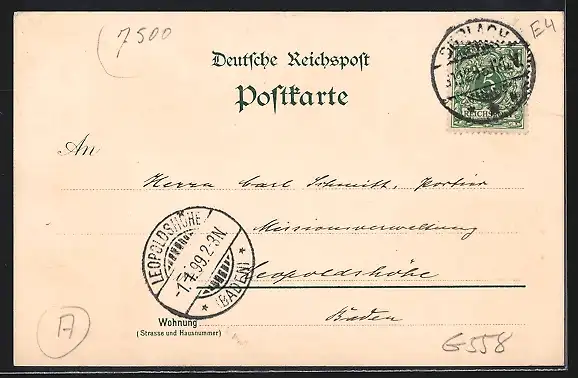 7500
E4
Deutsche Reichspost
Postkarte
5
REICHSPOST
An
Herrn Carl Schmitt, Portier
Missionsverwaltung
Leopoldshöhe
Baden
LEOPOLDSHÖHE
-1.1.99.2-3N.
* (BADEN) *
Wohnung
(Strasse und Hausnummer)
A
G558